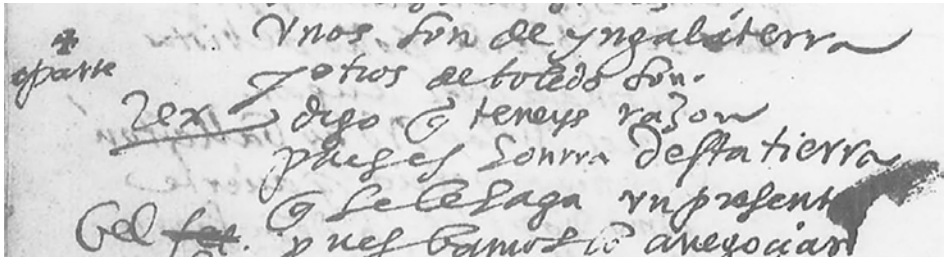 vnos son de yngalaterra
aparte
y otros de toledo son.
Rex digo q̃ teneys razon
pues es honrra desta tierra
q̃ se le haga vn present
Bel pues bamos lo a negociar